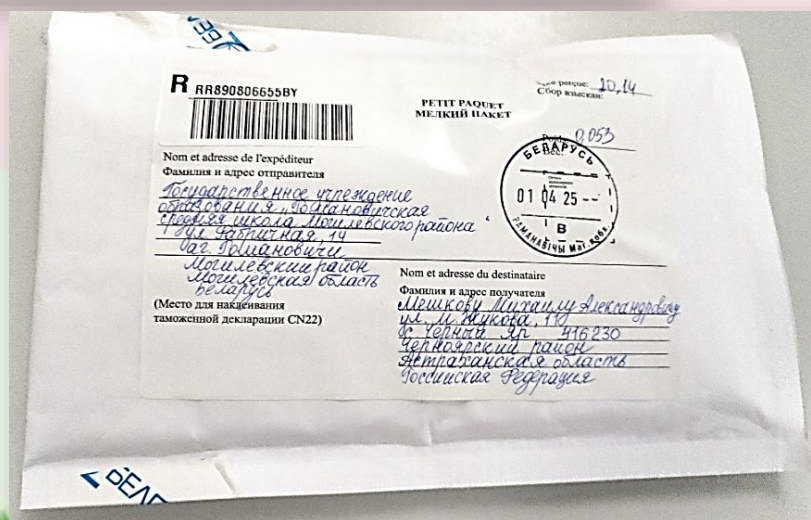 R RR890806655BY
PETIT PAQUET
МЕЛКИЙ ПАКЕТ
perçue: 20,14
Сбор взыскан:
0,053
БЕЛАРУСЬ
01 04 25 --
В
РАМАНАВІЧЫ Маг. вобл.
Nom et adresse de l'expéditeur
Фамилия и адрес отправителя
Государственное учреждение
образования „Романовичская
средняя школа Могилевского района“
ул Фабричная, 14
аг Романовичи
Могилевский район
Могилевская область
Беларусь
(Место для наклеивания
таможенной декларации CN22)
Nom et adresse du destinataire
Фамилия и адрес получателя
Мешкову Михаилу Александровичу
ул. М. Жукова,
с Черный Яр 416230
Черноярский район
Астраханская область
Российская Федерация
БЕЛ